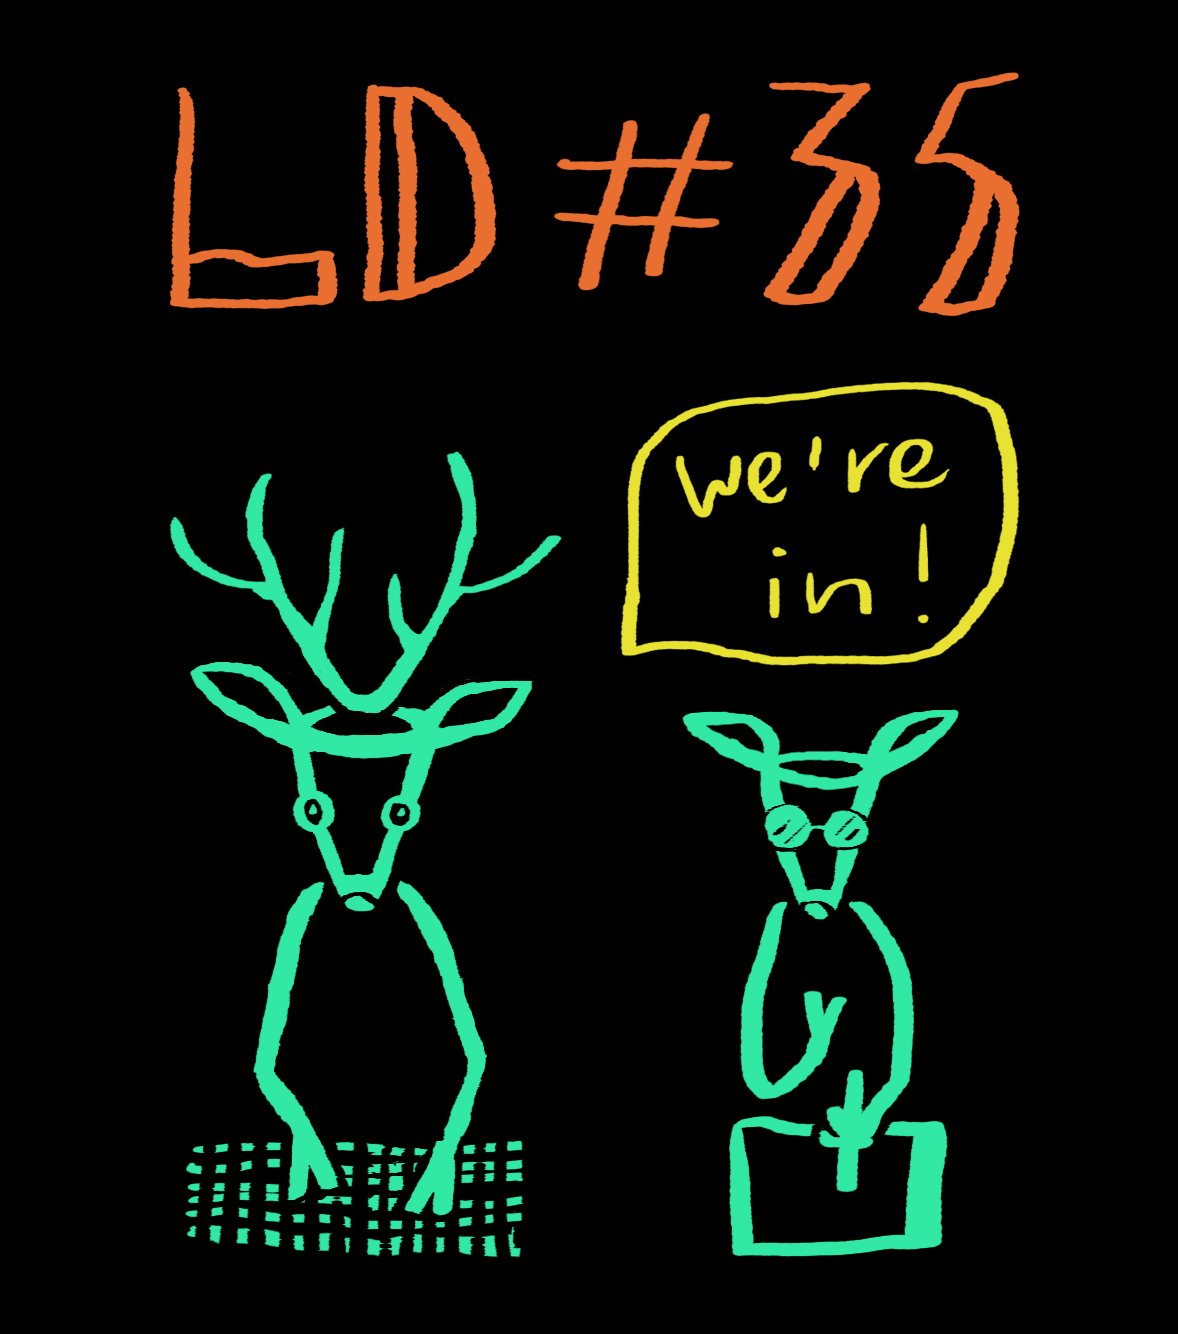 LD #35
we're
in!